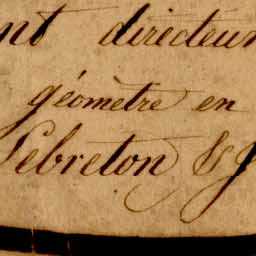 nt directeur
géomètre en
Lebreton &